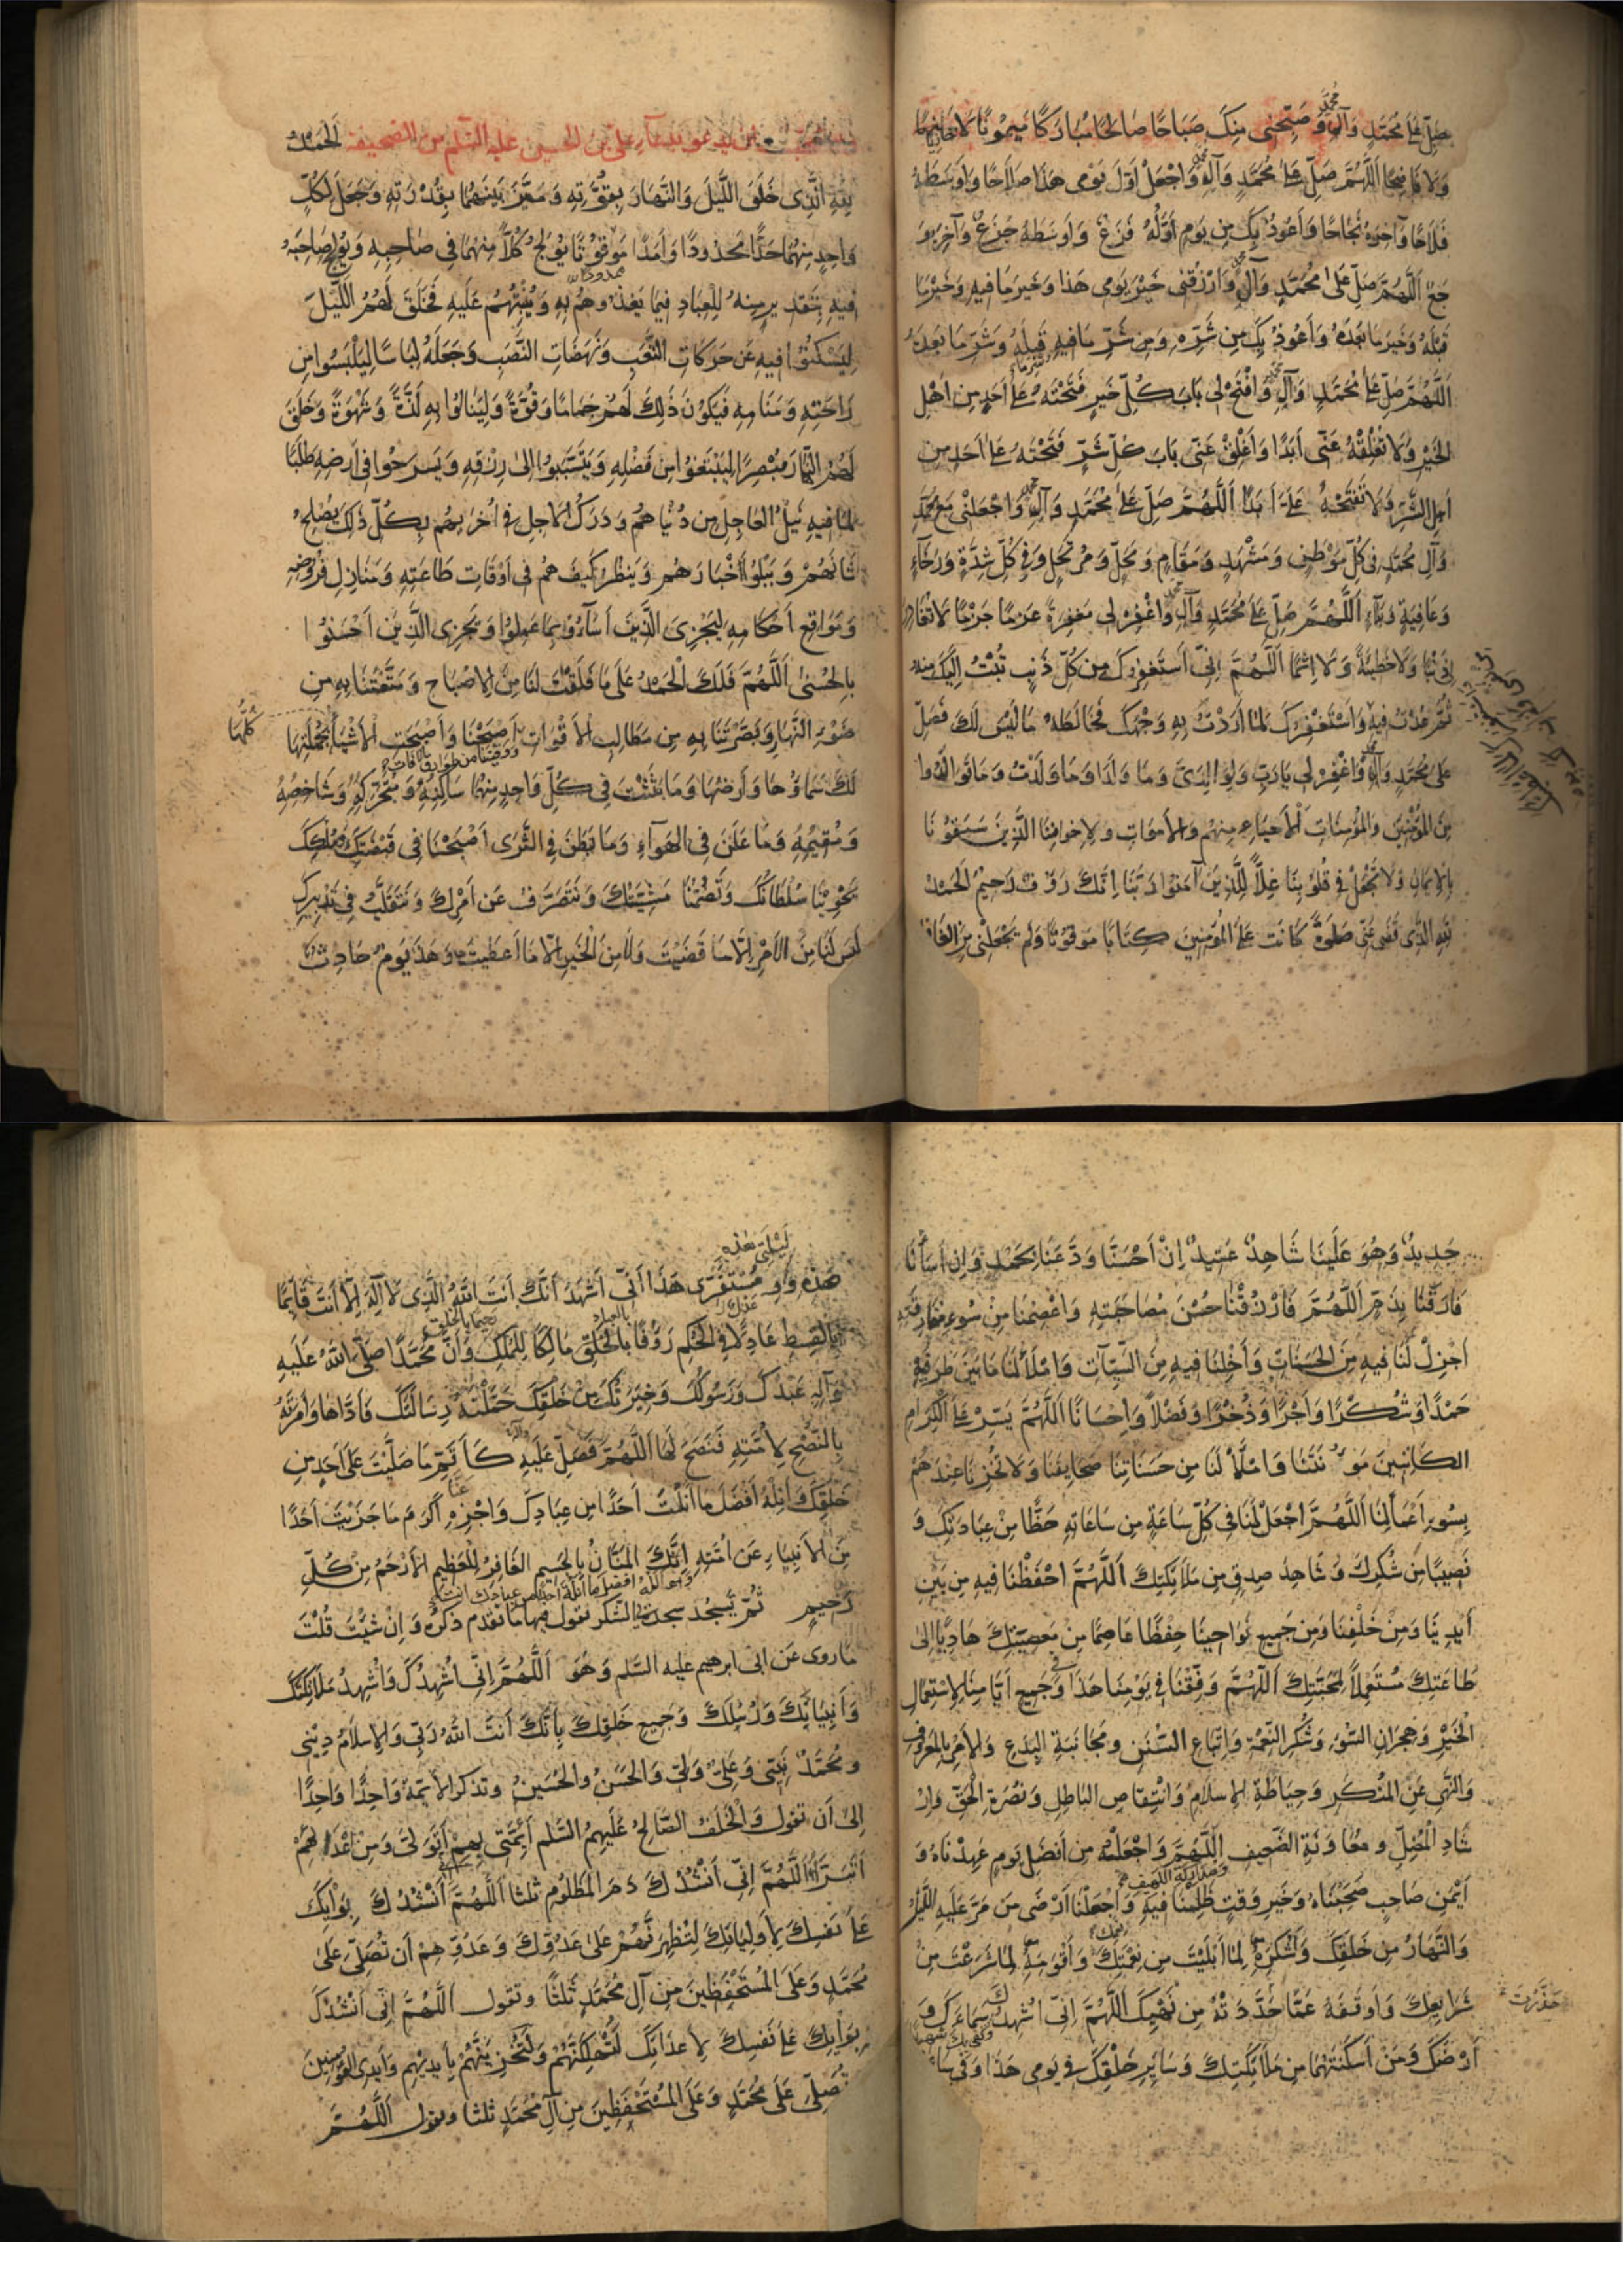 صَلِّ عَلىٰ مُحَمَّدٍ وَآلِهِ وَصَبِّحْنِي مِنكَ صَبَاحًا صَالِحًا مُبَارَكًا مَيْمُونًا لَا خَازِيًا
وَلَا فَاضِحًا اَللّٰهُمَّ صَلِّ عَلىٰ مُحَمَّدٍ وَآلِهِ وَاجْعَلْ اَوَّلَ يَوْمِي هَذَا صَلَاحًا وَاَوْسَطَهُ
فَلَاحًا وَآخِرَهُ نَجَاحًا وَاَعُوذُ بِكَ مِن يَوْمٍ اَوَّلُهُ فَزَعٌ وَاَوسَطُهُ جَزَعٌ وَآخِرُهُ وَ
جَعٌ اَللّٰهُمَّ صَلِّ عَلىٰ مُحَمَّدٍ وَآلِهِ وَارْزُقْنِي خَيْرَ يَوْمِي هَذَا وَخَيرَ مَا فِيهِ وَخَيْرَ مَا
قَبْلَهُ وَخَيرَ مَا بَعْدَهُ وَاَعُوذُ بِكَ مِن شَرِّهِ وَمِن شَرِّ مَا فِيهِ وَشَرِّ مَا قَبْلَهُ وَشَرِّ مَا بَعْدَهُ
اَللّٰهُمَّ صَلِّ عَلىٰ مُحَمَّدٍ وَآلِهِ وَافْتَحْ لِي بَابَ كُلِّ خَيرٍ فَتَحْتَهُ عَلىٰ اَحَدٍ مِن اَهْلِ
الخَيْرِ وَلَا تُغْلِقْهُ عَنِّي اَبَدًا وَاَغْلِقْ عَنِّي بَابَ كُلِّ شَرٍّ فَتَحْتَهُ عَلىٰ اَحَدٍ مِن
اَهلِ الشَّرِّ وَلَا تَفْتَحْهُ عَلَيَّ اَبَدًا اَللّٰهُمَّ صَلِّ عَلىٰ مُحَمَّدٍ وَآلِهِ وَاجْعَلْنِي مَعَ مُحَمَّدٍ
وَآلِ مُحَمَّدٍ فِي كُلِّ مَوْطِنٍ وَمَشْهَدٍ وَمَقَامٍ وَمَحَلٍّ وَمُرْتَحَلٍ وَفِي كُلِّ شِدَّةٍ وَرَخَآءٍ
وَعَافِيَةٍ وَبَلَاءٍ اَللّٰهُمَّ صَلِّ عَلىٰ مُحَمَّدٍ وَآلِهِ وَاغْفِرْ لِي مَغفِرَةً عَزمًا جَزْمًا لَا تُغَادِرُ
لِي ذَنْبًا وَلَا خَطِيئَةً وَلَا اِثْمًا اَللّٰهُمَّ اِنِّي اَستَغفِرُكَ مِن كُلِّ ذَنبٍ تُبْتُ اِلَيكَ مِنهُ
ثُمَّ عُدْتُ فِيهِ وَاسْتَغْفِرُكَ لِمَا اَرَدْتُ بِهِ وَجْهَكَ فَخَالَطَهُ مَا لَيْسَ لَكَ فَصَلِّ
عَلىٰ مُحَمَّدٍ وَآلِهِ وَاغْفِرْ لِي يَا رَبِّ وَلِوَالِدَيَّ وَمَا وَلَدَا وَمَا وَلَدْتُ وَمَا تَوَالَدُوا
مِنَ المُؤْمِنِينَ وَالمُؤمِنَاتِ اَلْاَحيَاءِ مِنهُم وَالاَموَاتِ وَلِاِخوَانِنَا الَّذِينَ سَبَقُونَا
بِالْاِيمَانِ وَلَا تَجْعَلْ فِي قُلُوبِنَا غِلًّا لِلَّذِينَ آمَنُوا رَبَّنَا اِنَّكَ رَؤُفٌ رَحِيمٌ اَلحَمدُ
لِلّٰهِ الَّذِي قَضىٰ عَنِّي صَلٰوةً كَانَت عَلَى المُؤمِنِينَ كِتَابًا مَوقُوتًا وَلَم يَجْعَلْنِي مِنَ الغَافِ
علي بن الحسين عليه السّلم من الصحيفة اَلحَمْدُ
لِلّٰهِ الَّذِي خَلَقَ اللَّيلَ وَالنَّهَارَ بِقُوَّتِهِ وَمَيَّزَ بَينَهُمَا بِقُدْرَتِهِ وَجَعَلَ لِكُلِّ
وَاحِدٍ مِنهُمَا حَدًّا مَحْدُودًا وَاَمَدًا مَوقُوتًا يُولِجُ كُلًّا مِنهُمَا فِي صَاحِبِهِ وَيُولِجُ صَاحِبَهُ
ممدودًا
فِيهِ بِتَقْدِيرٍ مِنهُ لِلعِبَادِ فِيمَا يَغْذُوهُم بِهِ وَيُنْشِئُهُم عَلَيهِ فَخَلَقَ لَهُمُ اللَّيْلَ
لِيَسْكُنُوا فِيهِ عَن حَرَكَاتِ التَّعَبِ وَنَهَضَاتِ النَّصَبِ وَجَعَلَهُ لِبَاسًا لِيَلْبَسُوا مِن
رَاحَتِهِ وَمَنَامِهِ فَيَكُونَ ذٰلِكَ لَهُم جَمَامًا وَقُوَّةً وَلِيَنَالُوا بِهِ لَذَّةً وَشَهْوَةً وَخَلَقَ
لَهُمُ النَّهَارَ مُبْصِرًا لِيَبْتَغُوا مِن فَضْلِهِ وَيَتَسَبَّبُوا اِلىٰ رِزْقِهِ وَيَسرَحُوا فِي اَرضِهِ طَلَبًا
لِمَا فِيهِ نَيلُ العَاجِلِ مِن دُنْيَاهُم وَدَرَكُ الاٰجِلِ فِي اُخرٰيهُم بِكُلِّ ذٰلِكَ يُصْلِحُ
شَانَهُمْ وَيَبْلُوا اَخْبَارَهُم وَيَنظُرُ كَيفَ هُم فِي اَوْقَاتِ طَاعَتِهِ وَمَنَازِلِ فُرُوضِهِ
وَمَوَاقِعِ اَحْكَامِهِ لِيَجْزِيَ الَّذِينَ اَسَآؤُا بِمَا عَمِلُوا وَيَجزِيَ الَّذِينَ اَحْسَنُوا
بِالحُسْنىٰ اَللّٰهُمَّ فَلَكَ الْحَمْدُ عَلىٰ مَا فَلَقْتَ لَنَا مِنَ الاِصْبَاحِ وَمَتَّعْتَنَا بِهِ مِن
ضَوْءِ النَّهَارِ وَبَصَّرْتَنَا بِهِ مِن مَطَالِبِ الاَقْوَاتِ اَصْبَحْنَا وَاَصْبَحَتِ الاَشْيَاءُ بِجُمْلَتِهَا
كُلُّهَا
ووقيتنا من طوارق الآفات
لَكَ سَمَاؤُهَا وَاَرضُهَا وَمَا بَثَثْتَ فِي كُلِّ وَاحِدٍ مِنهُمَا سَاكِنِهِ وَمُتَحَرِّكِهِ وَشَاخِصِهِ
وَمُقِيمِهِ وَمَا عَلَنَ فِي الهَوَآءِ وَمَا بَطَنَ فِي الثَّرىٰ اَصْبَحْنَا فِي قَبْضَتِكَ وَمُلكِكَ
يَحْوِينَا سُلطَانُكَ وَتَضُمُّنَا مَشِيَّتُكَ وَنَتَصَرَّفُ عَن اَمْرِكَ وَنَتَقَلَّبُ فِي تَدْبِيرِكَ
لَيسَ لَنَا مِنَ الاَمْرِ اِلَّا مَا قَضَيْتَ وَلَا مِنَ الخَيرِ اِلَّا مَا اَعطَيتَ وَهَذَا يَومٌ حَادِثٌ
جَدِيدٌ وَهُوَ عَلَينَا شَاهِدٌ عَتِيدٌ اِنْ اَحْسَنَّا وَدَّعَنَا بِحَمْدٍ وَاِن اَسَأْنَا
فَارَقَنَا بِذَمٍّ اَللّٰهُمَّ فَارْزُقْنَا حُسْنَ مُصَاحَبَتِهِ وَاعْصِمْنَا مِنْ سُوءِ مُفَارَقَتِهِ
اَجْزِلْ لَنَا فِيهِ مِنَ الحَسَنَاتِ وَاَخْلِنَا فِيهِ مِنَ السَّيِّآتِ وَامْلَأْ لَنَا مَا بَيْنَ طَرَفَيْهِ
حَمْدًا وَشُكْرًا وَاَجْرًا وَذُخْرًا وَفَضْلًا وَاِحْسَانًا اَللّٰهُمَّ يَسِّرْ عَلَى الكِرَامِ
الكَاتِبِينَ مَؤُنَتَنَا وَامْلَأْ لَنَا مِن حَسَنَاتِنَا صَحَايِفَنَا وَلَا تُخْزِنَا عِندَهُمْ
بِسُوءِ اَعْمَالِنَا اَللّٰهُمَّ اجْعَلْ لَنَا فِي كُلِّ سَاعَةٍ مِن سَاعَاتِهِ حَظًّا مِنْ عِبَادَتِكَ وَ
نَصِيبًا مِن شُكْرِكَ وَشَاهِدَ صِدقٍ مِن مَلَائِكَتِكَ اَللّٰهُمَّ احْفَظْنَا فِيهِ مِن بَيْنِ
اَيْدِينَا وَمِنْ خَلْفِنَا وَمِن جَمِيعِ نَوَاحِينَا حِفْظًا عَاصِمًا مِنْ مَعصِيَتِكَ هَادِيًا اِلىٰ
طَاعَتِكَ مُستَعْمِلًا لِمَحَبَّتِكَ اَللّٰهُمَّ وَفِّقْنَا فِي يَوْمِنَا هَذَا وَفِي جَمِيعِ اَيَّامِنَا لِاسْتِعْمَالِ
الْخَيْرِ وَهِجْرَانِ السُّوءِ وَشُكْرِ النِّعْمَةِ وَاتِّبَاعِ السُّنَنِ وَمُجَانَبَةِ البِدَعِ وَالاَمْرِ بِالمَعرُوفِ
وَالنَّهْيِ عَنِ المُنْكَرِ وَحِيَاطَةِ الاِسلَامِ وَانْتِقَاصِ البَاطِلِ وَنُصْرَةِ الْحَقِّ وَاِرْ
شَادِ الْمُضِلِّ وَمُعَاوَنَةِ الضَّعِيفِ اَللّٰهُمَّ وَاجْعَلْهُ مِن اَفضَلِ يَومٍ عَهِدْنَاهُ وَ
ومداركة اللهيف
اَيْمَنِ صَاحِبٍ صَحِبْنَاهُ وَخَيرِ وَقتٍ ظَلِلْنَا فِيهِ وَاجْعَلْنَا اَرْضىٰ مَن مَرَّ عَلَيهِ اللَّيْلُ
وَالنَّهَارُ مِن خَلقِكَ وَاَشْكَرَهُ لِمَا اَبْلَيْتَ مِن نِعْمَتِكَ وَاَقْوَمَهُ لِمَا شَرَعْتَ مِن
شَرَايِعِكَ وَاَوقَفَهُ عَمَّا حَدَّدتَهُ مِن نَهْيِكَ اَللّٰهُمَّ اِنِّي اُشْهِدُكَ سَمَاءَكَ وَ
حَذَّرْتَ
وكفى بك شهيدا
اَرْضَكَ وَمَنْ اَسْكَنْتَهُمَا مِن مَلَائِكَتِكَ وَسَايِرِ خَلْقِكَ فِي يَومِي هَذَا وَفِي سَاعَتِي
لَيْلَتِي هٰذِهِ
هَذِهِ وَ مُسْتَقَرِّي هَذَا اَنِّي اَشْهَدُ اَنَّكَ اَنتَ اللّٰهُ الَّذِي لَا اِلٰهَ اِلَّا اَنتَ قَائِمًا
بِالقِسطِ عَادِلًا فِي الحُكمِ رَؤُفًا بِالخَلقِ مَالِكًا لِلمُلكِ وَاَنَّ مُحَمَّدًا صَلَّى اللّٰهُ عَلَيهِ
وَآلِهِ عَبدُكَ وَرَسُولُكَ وَخِيَرَتُكَ مِن خَلقِكَ حَمَّلْتَهُ رِسَالَتَكَ فَاَدَّاهَا وَاَمَرتَهُ
بِالنُّصْحِ لِاُمَّتِهِ فَنَصَحَ لَهَا اَللّٰهُمَّ فَصَلِّ عَلَيهِ كَاَتَمِّ مَا صَلَّيْتَ عَلىٰ اَحَدٍ مِن
خَلقِكَ وَاَنِلْهُ اَفْضَلَ مَا اَنَلْتَ اَحَدًا مِن عِبَادِكَ وَاجْزِهِ اَكرَمَ مَا جَزَيْتَ اَحَدًا
عَنَّا
مِنَ الاَنبِيَاءِ عَن اُمَّتِهِ اِنَّكَ المَنَّانُ بِالجَسِيمِ الغَافِرُ لِلعَظِيمِ الاَرْحَمُ مِن كُلِّ
رَحِيمٍ ثُمَّ يَسْجُد سجدتي الشّكر يقول فيهما ما تقدم ذكره وَاِن شِئْتَ قُلْتَ
ما روى عن ابى ابرهيم عليه السَّلم وَهُوَ اَللّٰهُمَّ اِنِّي اُشْهِدُكَ وَاُشْهِدُ مَلَائِكَتَكَ
وَاَنبِيَائَكَ وَرُسُلَكَ وَجَمِيعَ خَلقِكَ بِاَنَّكَ اَنتَ اللّٰهُ رَبِّي وَالاِسلَامُ دِينِي
وَمُحَمَّدٌ نَبِيِّي وَعَلِيٌّ وَلِيِّي وَالحَسَنُ وَالحُسَينُ وتذكر الائمّة وَاحِدًا وَاحِدًا
اِلىٰ اَن تقول وَالْخَلَفُ الصَّالِحُ عَلَيهِمُ السَّلم اَئِمَّتِي بِهِم اَتَوَلّىٰ وَمِن اَعْدَائِهِمْ
اَتَبَرَّأُ اَللّٰهُمَّ اِنِّي اَنْشُدُكَ دَمَ المَظلُومِ ثلثا اَللّٰهُمَّ اَنْشُدُكَ بِوَاْيِكَ
عَلىٰ نَفسِكَ لِاَولِيَائِكَ لِتُظهِرَنَّهُمْ عَلىٰ عَدُوِّكَ وَعَدُوِّهِم اَن تُصَلِّيَ عَلىٰ
مُحَمَّدٍ وَعَلَى المُستَحْفَظِينَ مِن آلِ مُحَمَّدٍ ثلثًا وتقول اَللّٰهُمَّ اِنِّي اَنْشُدُكَ
بِوَاْيِكَ عَلىٰ نَفسِكَ لِاَعدَائِكَ لَتُهْلِكَنَّهُمْ وَلَتُخْزِيَنَّهُمْ بِاَيدِيهِم وَاَيدِي المُؤمِنِينَ
تُصَلِّيَ عَلىٰ مُحَمَّدٍ وَعَلَى المُسْتَحْفَظِينَ مِن آلِ مُحَمَّدٍ ثلثا وتقول اَللّٰهُمَّ